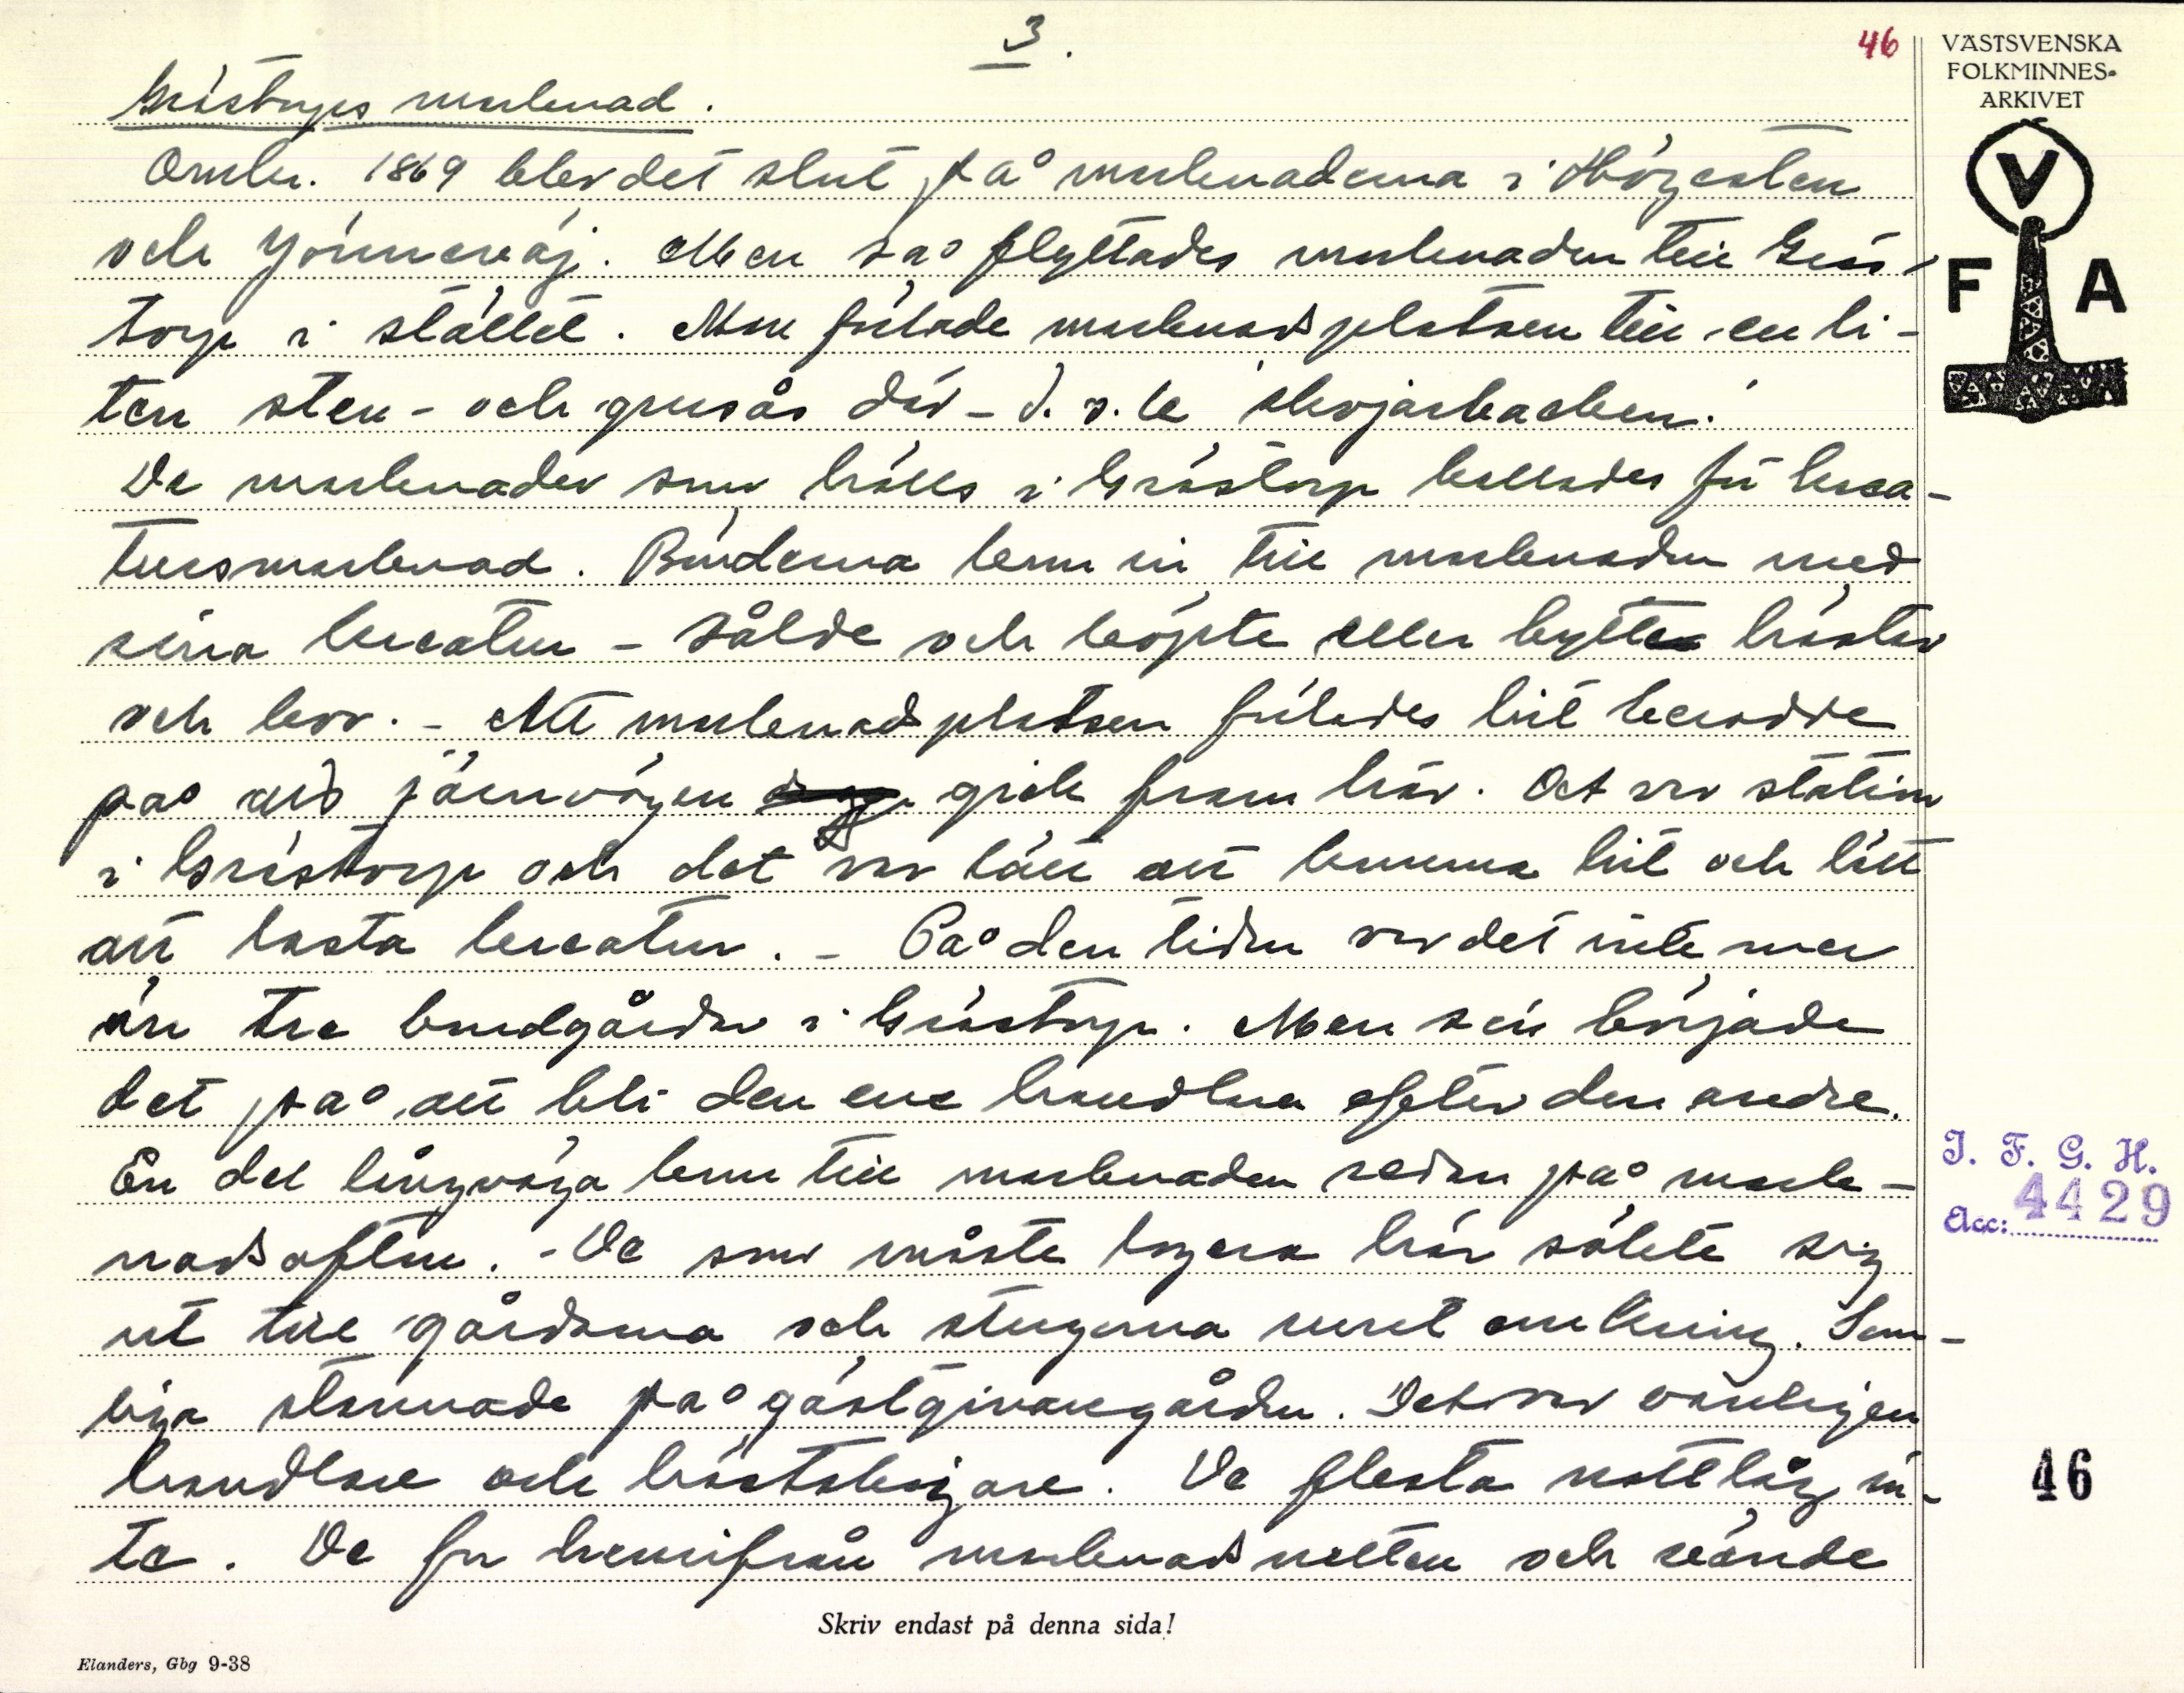 3.
46
VÄSTSVENSKA
FOLKMINNES-
ARKIVET
V
F A
Grästorps marknad.
Omkr. 1869 blev det slut på marknaderna i Högesten
och Jönneväj. Men så flyttades marknaden till Gräs-
torp i stället. Man förlade marknadsplatsen till en li-
ten sten- och grusås där - d. v. s.
De marknader som hölls i Grästorp kallades för krea-
tursmarknad. Bönderna kom in till marknaden med
sina kreatur - sålde och köpte eller bytte hästar
och kor. - Att marknadsplatsen förlades hit berodde
på att järnvägen gick fram här. Det var station
i Grästorp och det var lätt att komma hit och lätt
att lasta kreatur. - På den tiden var det inte mer
än tre bondgårdar i Grästorp. Men sen började
det på att bli den ene handlarn efter den andre.
En del långväga kom till marknaden redan på mark-
nadsafton. - De som måste logera här sökte sig
ut till gårdarna och stugorna runt omkring. Som-
liga stannade på gästgivaregården. Det var vanligen
handlare och hästskojare. De flesta nattlåg in-
te. De for hemifrån marknadsnatten och vände
J. F. G. H.
Acc: 4429
46
Skriv endast på denna sida!
Elanders, Gbg 9-38